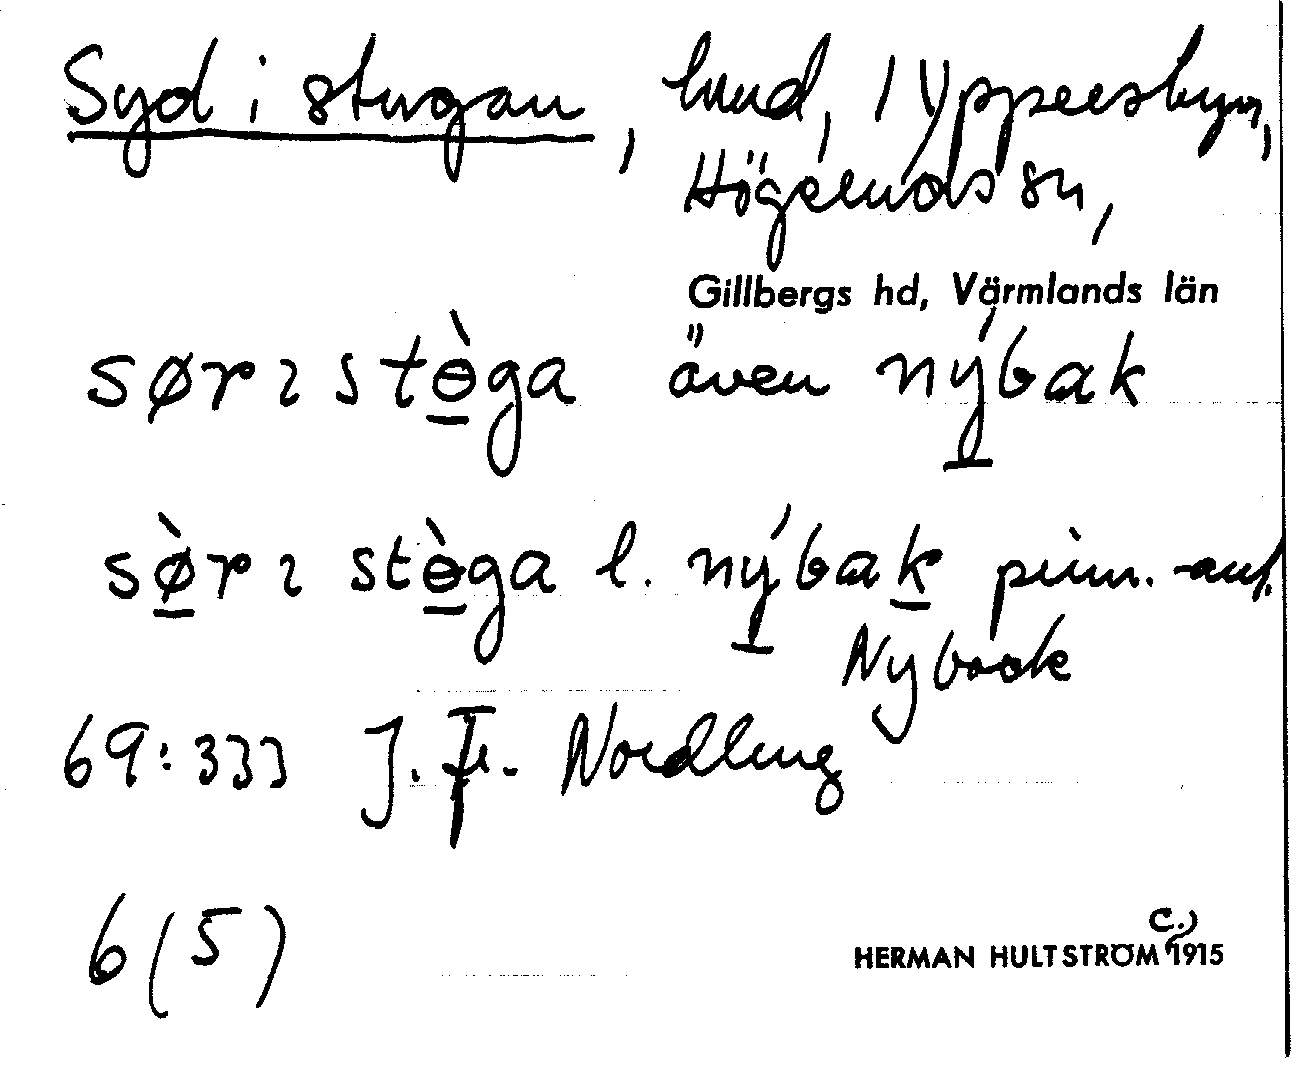 Syd i stugan, lund, i Yppersbyn,
Högerud sn,
Gillbergs hd, Värmlands län
sørɿstɵ̀ga även nýbak
sø̀rɿ stɵ̀ga l. nýbak prim.-ant.
Nyback
69:333 J. Fr. Nordling
6(5)
C.)
HERMAN HULTSTRÖM 1915